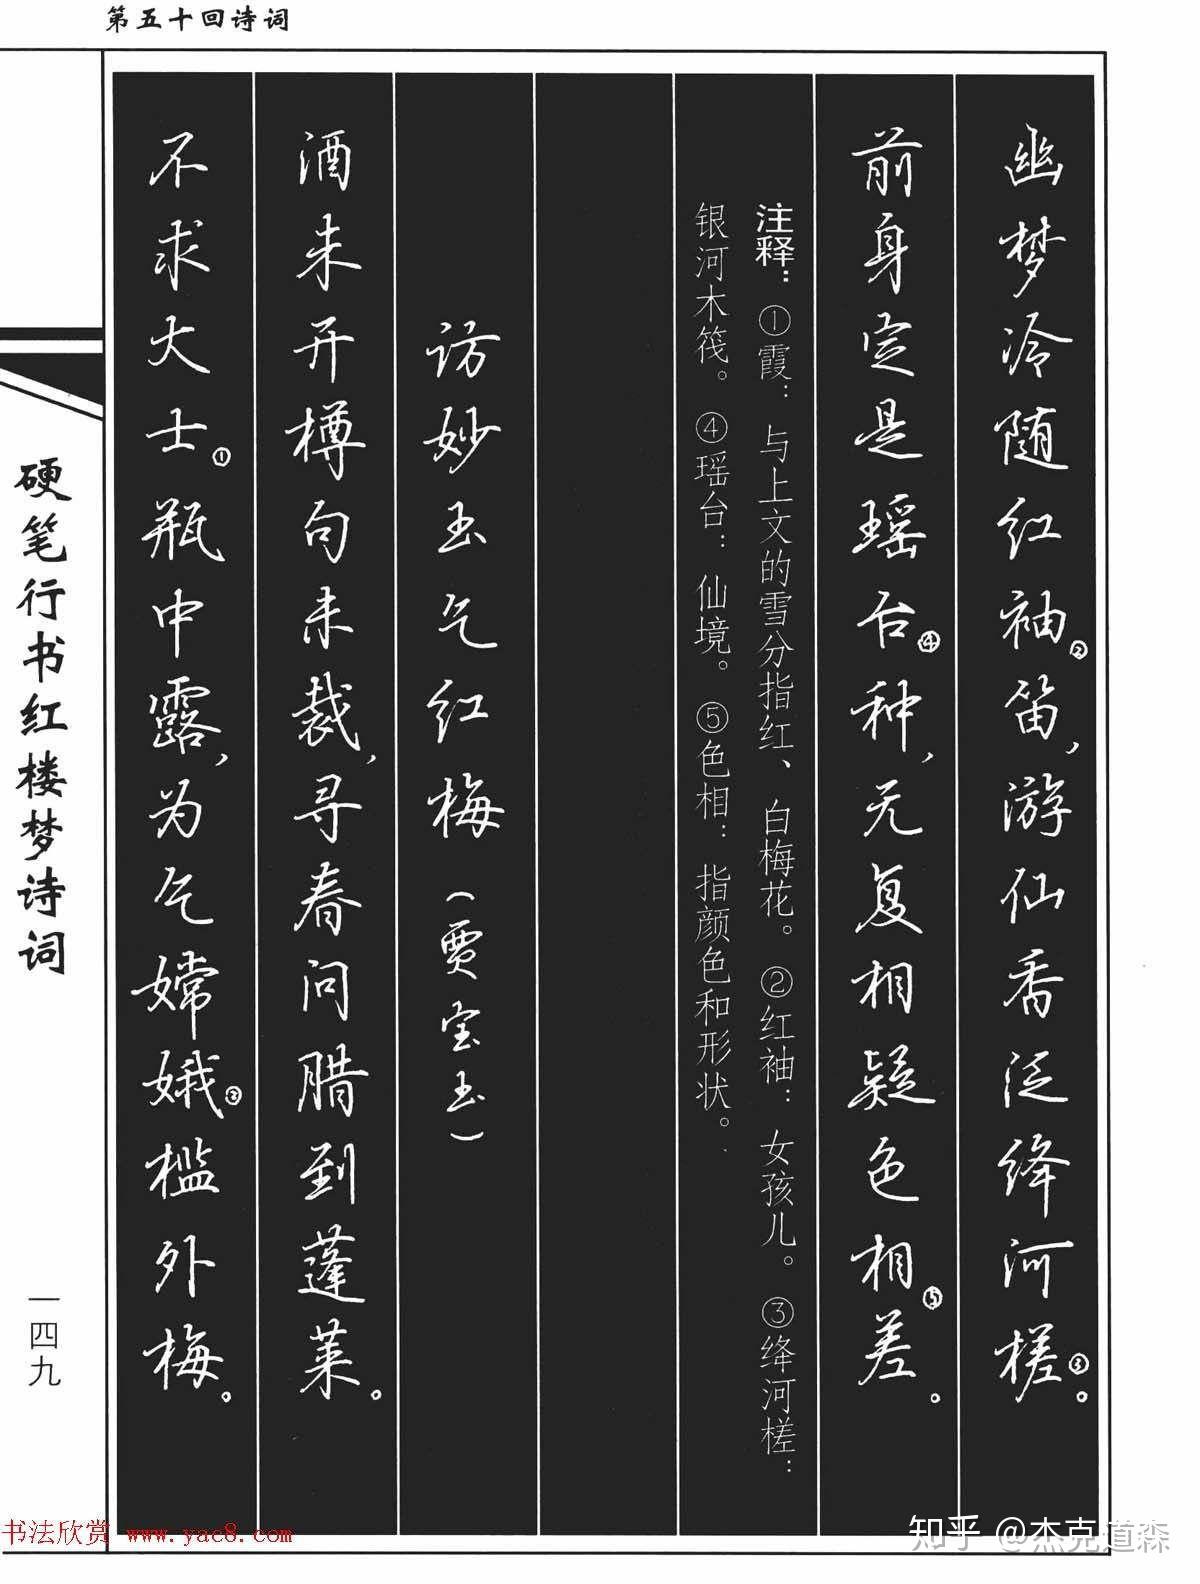 第五十回诗词
幽梦冷随红袖②笛，游仙香泛绛河槎③。
前身定是瑶台④种，无复相疑色相⑤差。
注释：①霞：与上文的雪分指红、白梅花。②红袖：女孩儿。③绛河槎：
银河木筏。④瑶台：仙境。⑤色相：指颜色和形状。
访妙玉乞红梅（贾宝玉）
酒未开樽句未裁，寻春问腊到蓬莱。
不求大士①瓶中露，为乞嫦娥②槛外梅。
硬笔行书红楼梦诗词
一四九
书法欣赏 www.yac8.com
知乎 @杰克道森